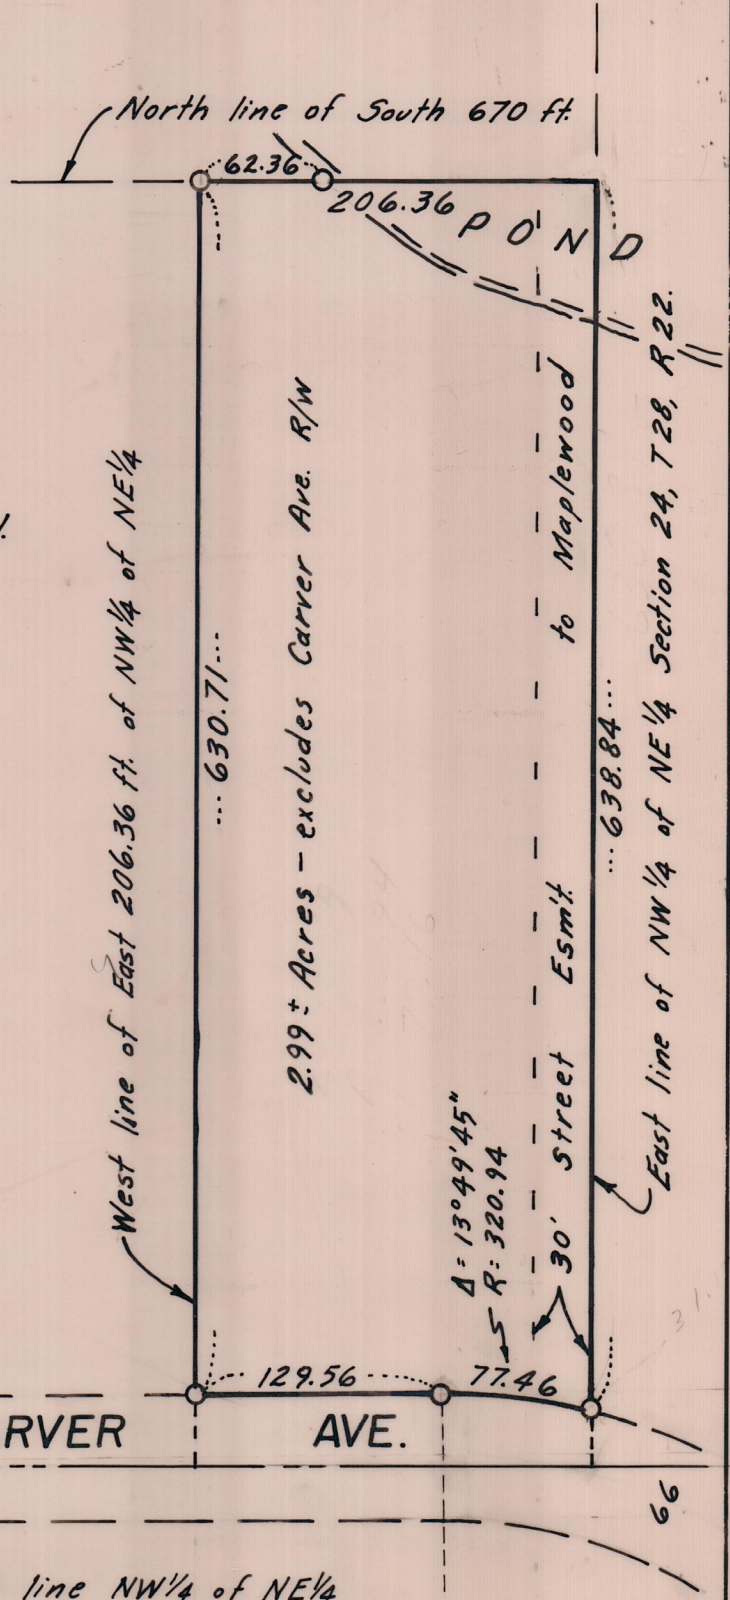 North line of South 670 ft.
62.36
206.36
POND
West line of East 206.36 ft. of NW¼ of NE¼
630.71
2.99± Acres – excludes Carver Ave. R/W
30' Street Esm't. to Maplewood
638.84
East line of NW¼ of NE¼ Section 24, T28, R22.
Δ = 13°49'45"
R = 320.94
129.56
77.46
RVER AVE.
66
line NW¼ of NE¼